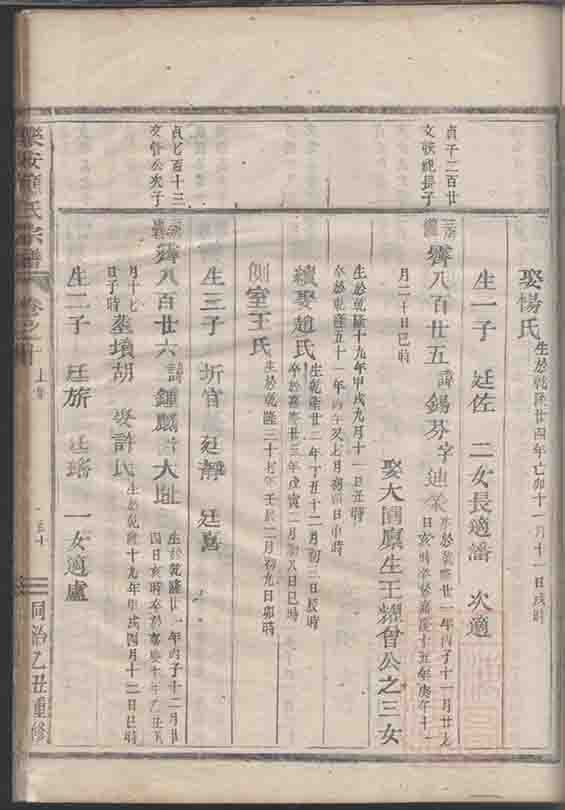 娶楊氏 生於乾隆廿四年己卯十一月十一日戌時
貞字二百廿
生一子 廷佐 二女長適潘 次適
齊八百廿五 諱錫芬字迪榮 生於乾隆廿一年丙子十一月廿七
日亥時卒於嘉慶十五年庚午十一
月二十日巳時
娶大園原生王耀曾公之三女
生於乾隆十九年甲戌九月十一日丑時
卒於乾隆五十一年丙午七月初四日申時
續娶趙氏 生於乾隆廿二年丁丑十二月初三日辰時
卒於嘉慶廿三年戊寅二月初八日巳時
側室王氏 生於乾隆三十七年壬辰二月初九日卯時
貞七百十三
文管公次子
生三子 圻官 廷靜 廷喜
齊八百廿六 諱鍾 字大 生於乾隆廿一年丙子十二月廿
四日亥時卒於嘉慶十年乙丑五
月十七
日子時
葬墳胡 娶許氏 生於乾隆十九年甲戌四月十二日巳時
生二子 廷旂 廷瑤 一女適盧
樂安 氏宗譜 卷之十
同治乙丑重修